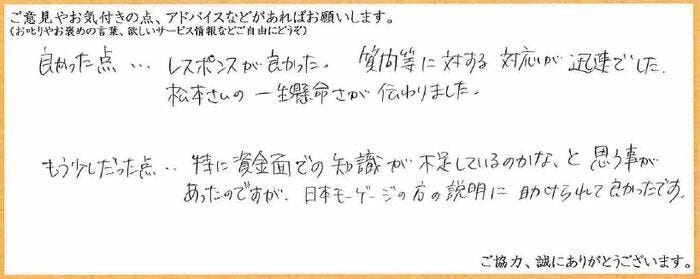 ご意見やお気付きの点、アドバイスなどがあればお願いします。
(お叱りやお褒めの言葉、欲しいサービス情報などご自由にどうぞ)
良かった点… レスポンスが良かった。 質問等に対する対応が迅速でした。
松本さんの一生懸命さが伝わりました。
もう少しだった点‥特に資金面での知識が不足しているのかな、と思う事が
あったのですが、日本モーゲージの方の説明に助けられて良かったです。
ご協力、誠にありがとうございます。